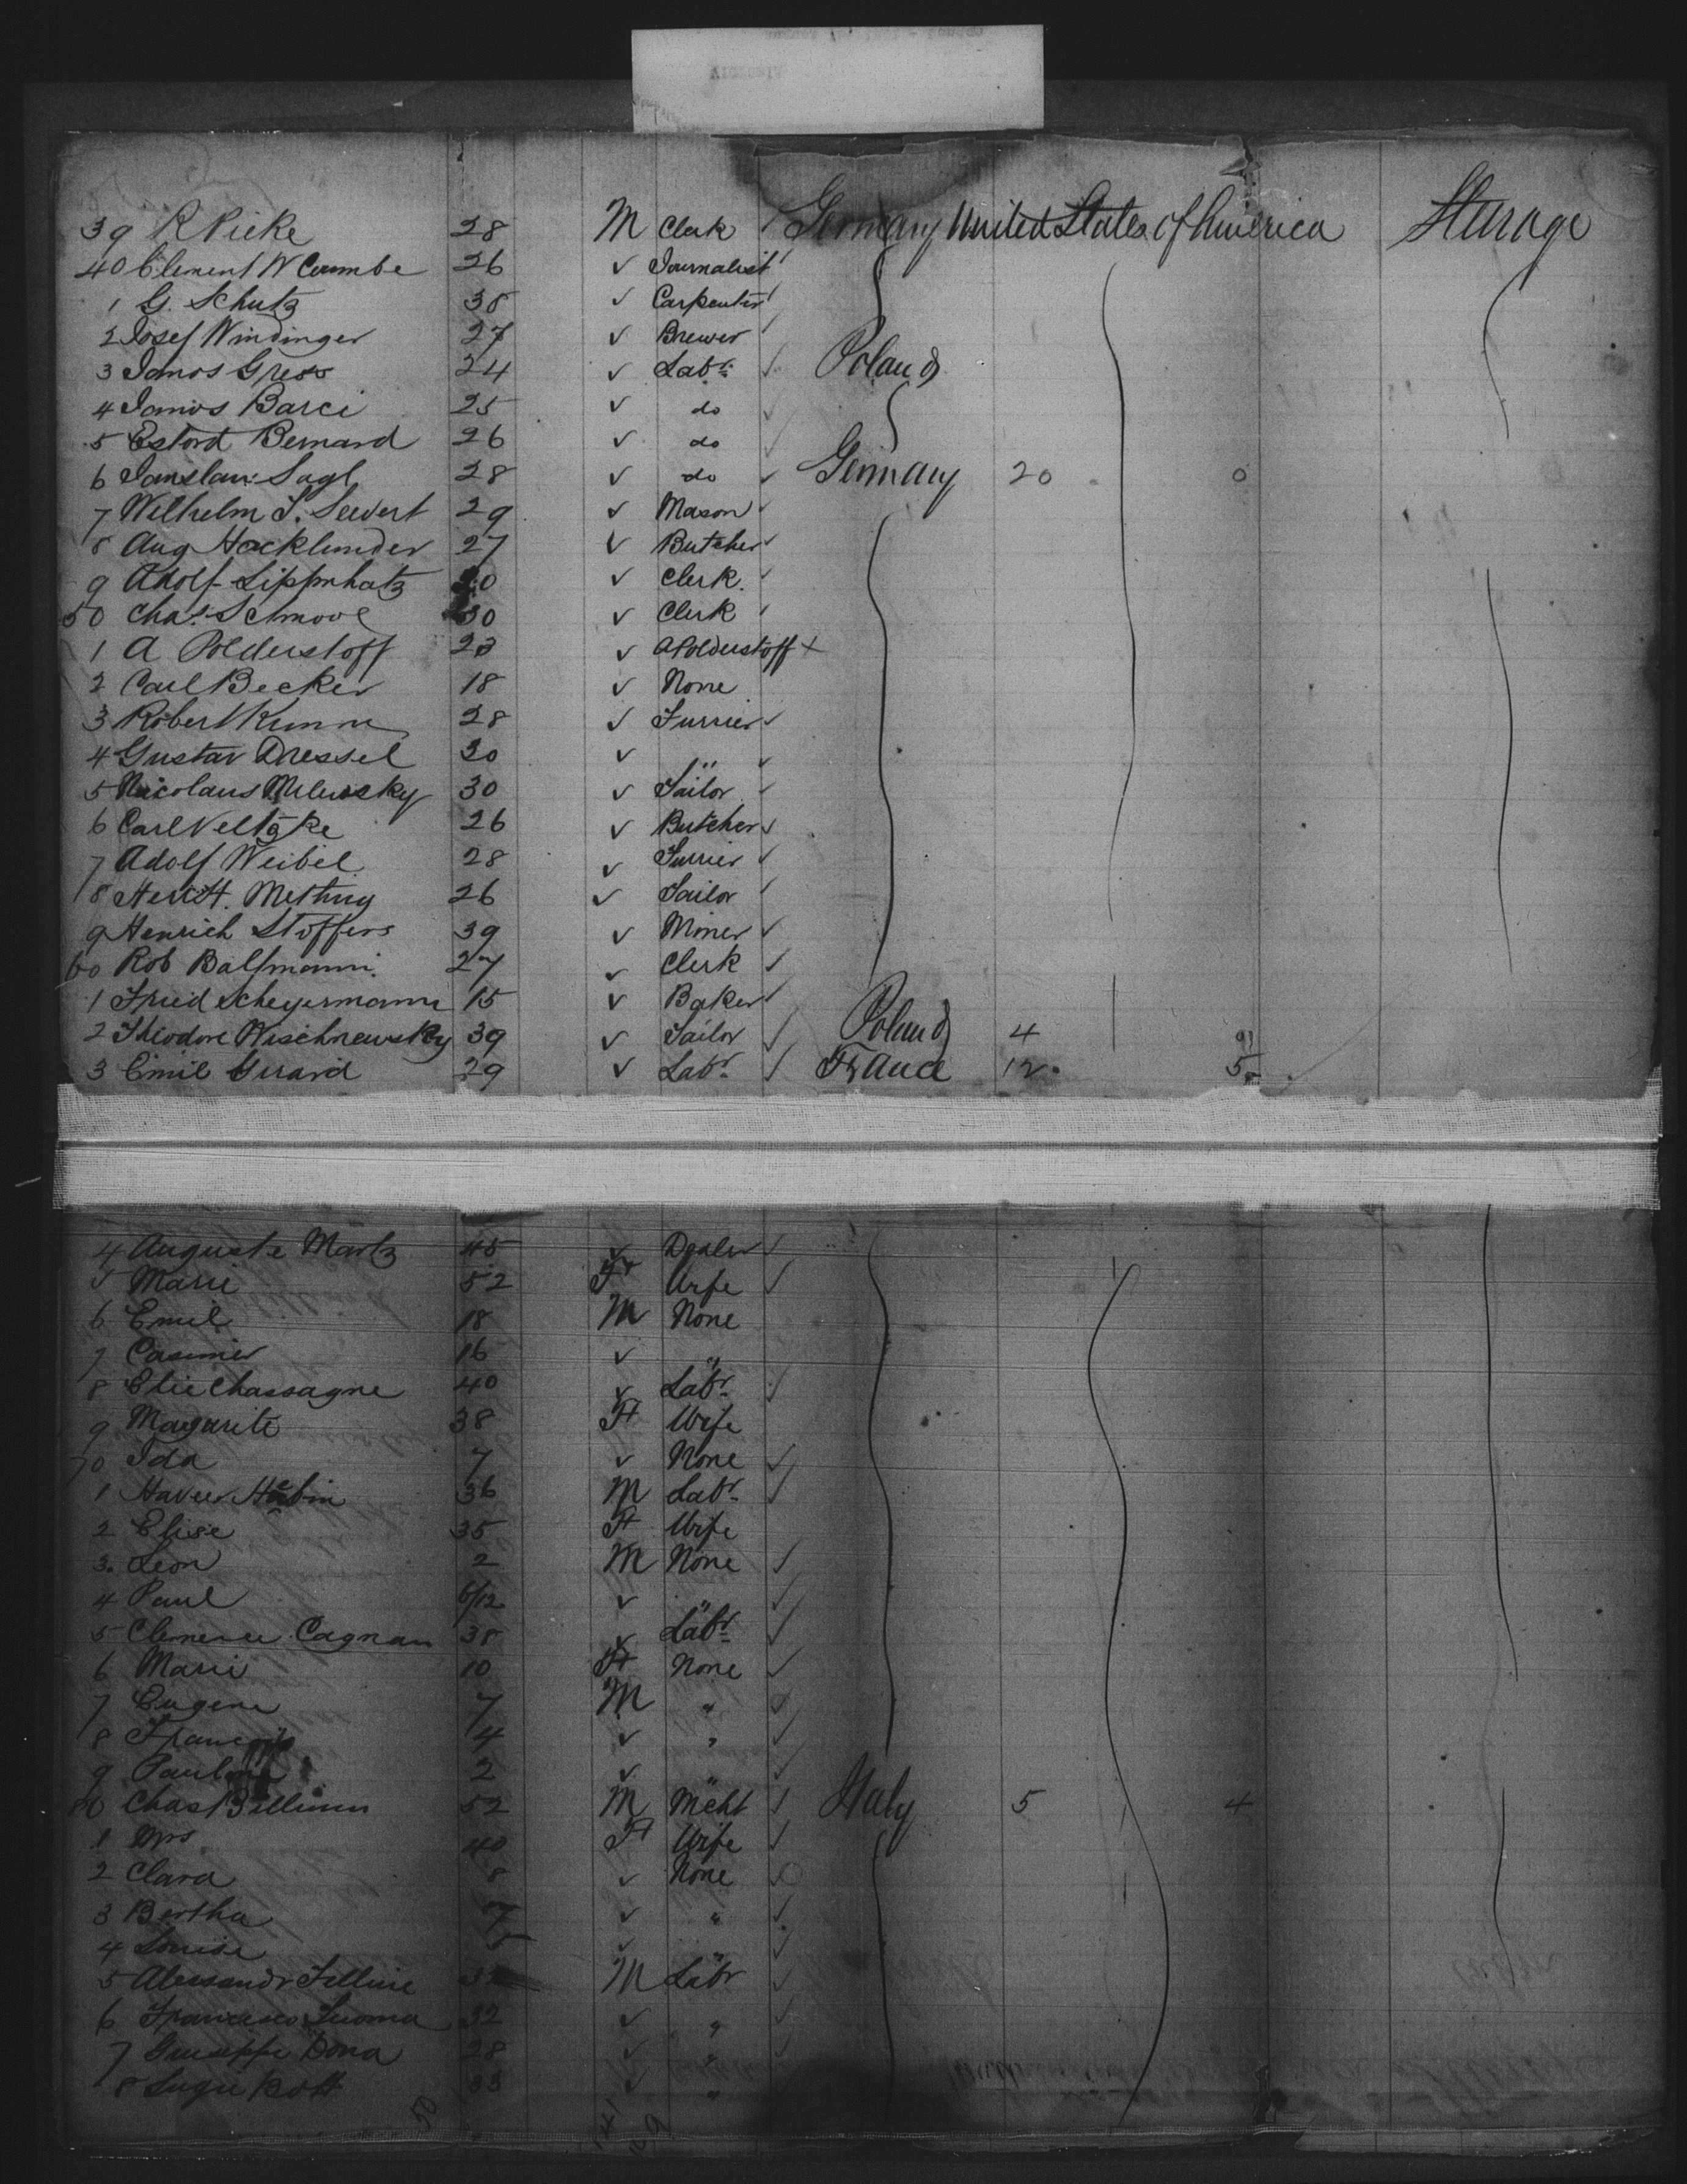 39 R Rieke 28 M Clerk Germany United States of America Sterage
40 Clement W Coumbe 26 ✓ Journalist
1 G. Schutz 38 ✓ Carpenter
2 Josef Windinger 27 ✓ Brewer
3 Janos Gress 24 ✓ Labr. Poland
4 Janos Barci 25 ✓ do
5 Bernard 26 ✓ do
6 Sagl 28 ✓ do Germany 20 0
7 Wilhelm S. Seevert 29 ✓ Mason
8 Aug Hocklunder 27 ✓ Butcher
9 Adolf Lippmhatz ✓ Clerk
50 Chas. Schmool 30 ✓ Clerk
1 A Polderstoff ✓ APolderstoff +
2 Carl Becker 18 ✓ None
3 Robert Kumm 28 ✓ Furrier
4 Gustav Dressel 30 ✓ "
5 Nicolaus Milewsky 30 ✓ Tailor
6 Carl Veltzke 26 ✓ Butcher
7 Adolf Weibel 28 ✓ Furrier
8 H. Methny 26 ✓ Tailor
9 Henrich Stoffers 39 ✓ Miner
60 Rob Balfmann 27 ✓ Clerk
1 Fried Scheyermann 15 ✓ Baker
2 Theodore Wischnewsky 39 ✓ Tailor Poland 4 9
3 Emil Girard 29 ✓ Labr. France 12 5
4 Auguste Martz 45 ✓ Dealer
5 Marie 52 F Wife
6 Emil 18 M None
7 Casimir 16 ✓ "
8 Elie Chassagne 40 ✓ Labr.
9 Magarite 38 F Wife
70 Ida 7 ✓ None
1 Habin 36 M Labr.
2 Elise 35 F Wife
3 Leon 2 M None
4 Paul 6/12 ✓ "
5 Clemence Cagnan 38 ✓ Labr
6 Marie 10 F None
7 Eugene 7 M "
8 Francois 4 ✓ "
9 Pauline 2 ✓ "
80 Chas Bellinni 52 M Mcht Italy 5 4
1 Mrs 40 F Wife
2 Clara 8 ✓ None
3 Bertha 7 ✓ "
4 Louise 5 ✓ "
5 Alessandr Felline M Labr
6 Francesco 32 ✓ "
7 Giuseppe Dona 28 ✓ "
8 Bott 33 ✓ "